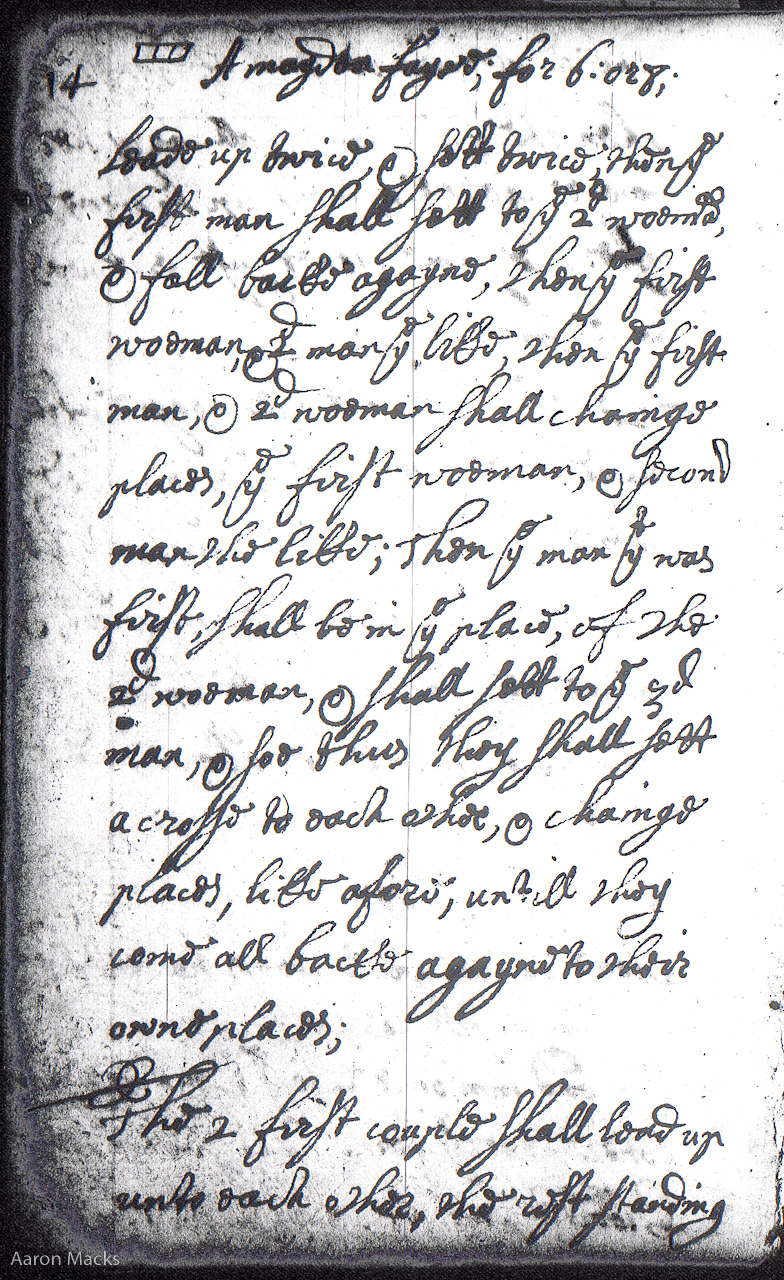 14
A maydon fayre, for 6: or 8;
leade up twice, & sett twice, then ye
first man shall sett to ye 2d woeman,
& fall backe agayne, then ye first
woeman, & 2d man ye like, then ye first
man, & 2d woeman shall chainge
places, ye first woeman, & second
man the like; Then ye man yt was
first, shall be in ye place, of the
2d woeman, & shall sett to ye 3d
man, & soe thus they shall sett
a crosse to each other, & chainge
places, like afore, untill they
come all backe agayne to their
owne places;
The 2 first couple shall lead up
unto each other, the rest standing
Aaron Macks